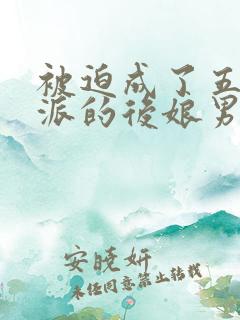 被迫成了五
派的後娘男
安晓妍
未经同意禁止转载